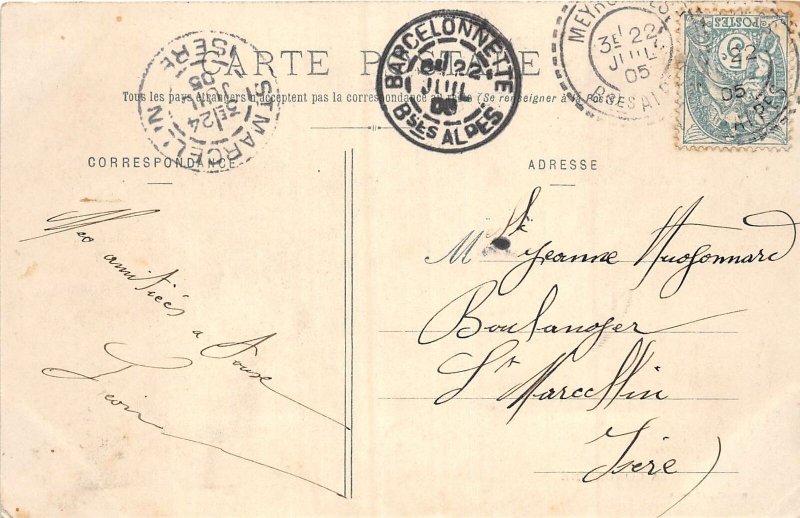 CARTE POSTALE
Tous les pays étrangers n'acceptent pas la correspondance au recto (Se renseigner à la Poste)
ST MARCELLIN
3E 24
JUIL
05
ISERE
BARCELONNETTE
6E 22
JUIL
05
BSES ALPES
3E 22
JUIL
05
BSES ALPES
POSTES
22
05
ALPES
CORRESPONDANCE
Mes amitiées a
Tous
Léon
ADRESSE
Mlle Jeanne Hugonnard
Boulanger
St Marcellin
Isère)